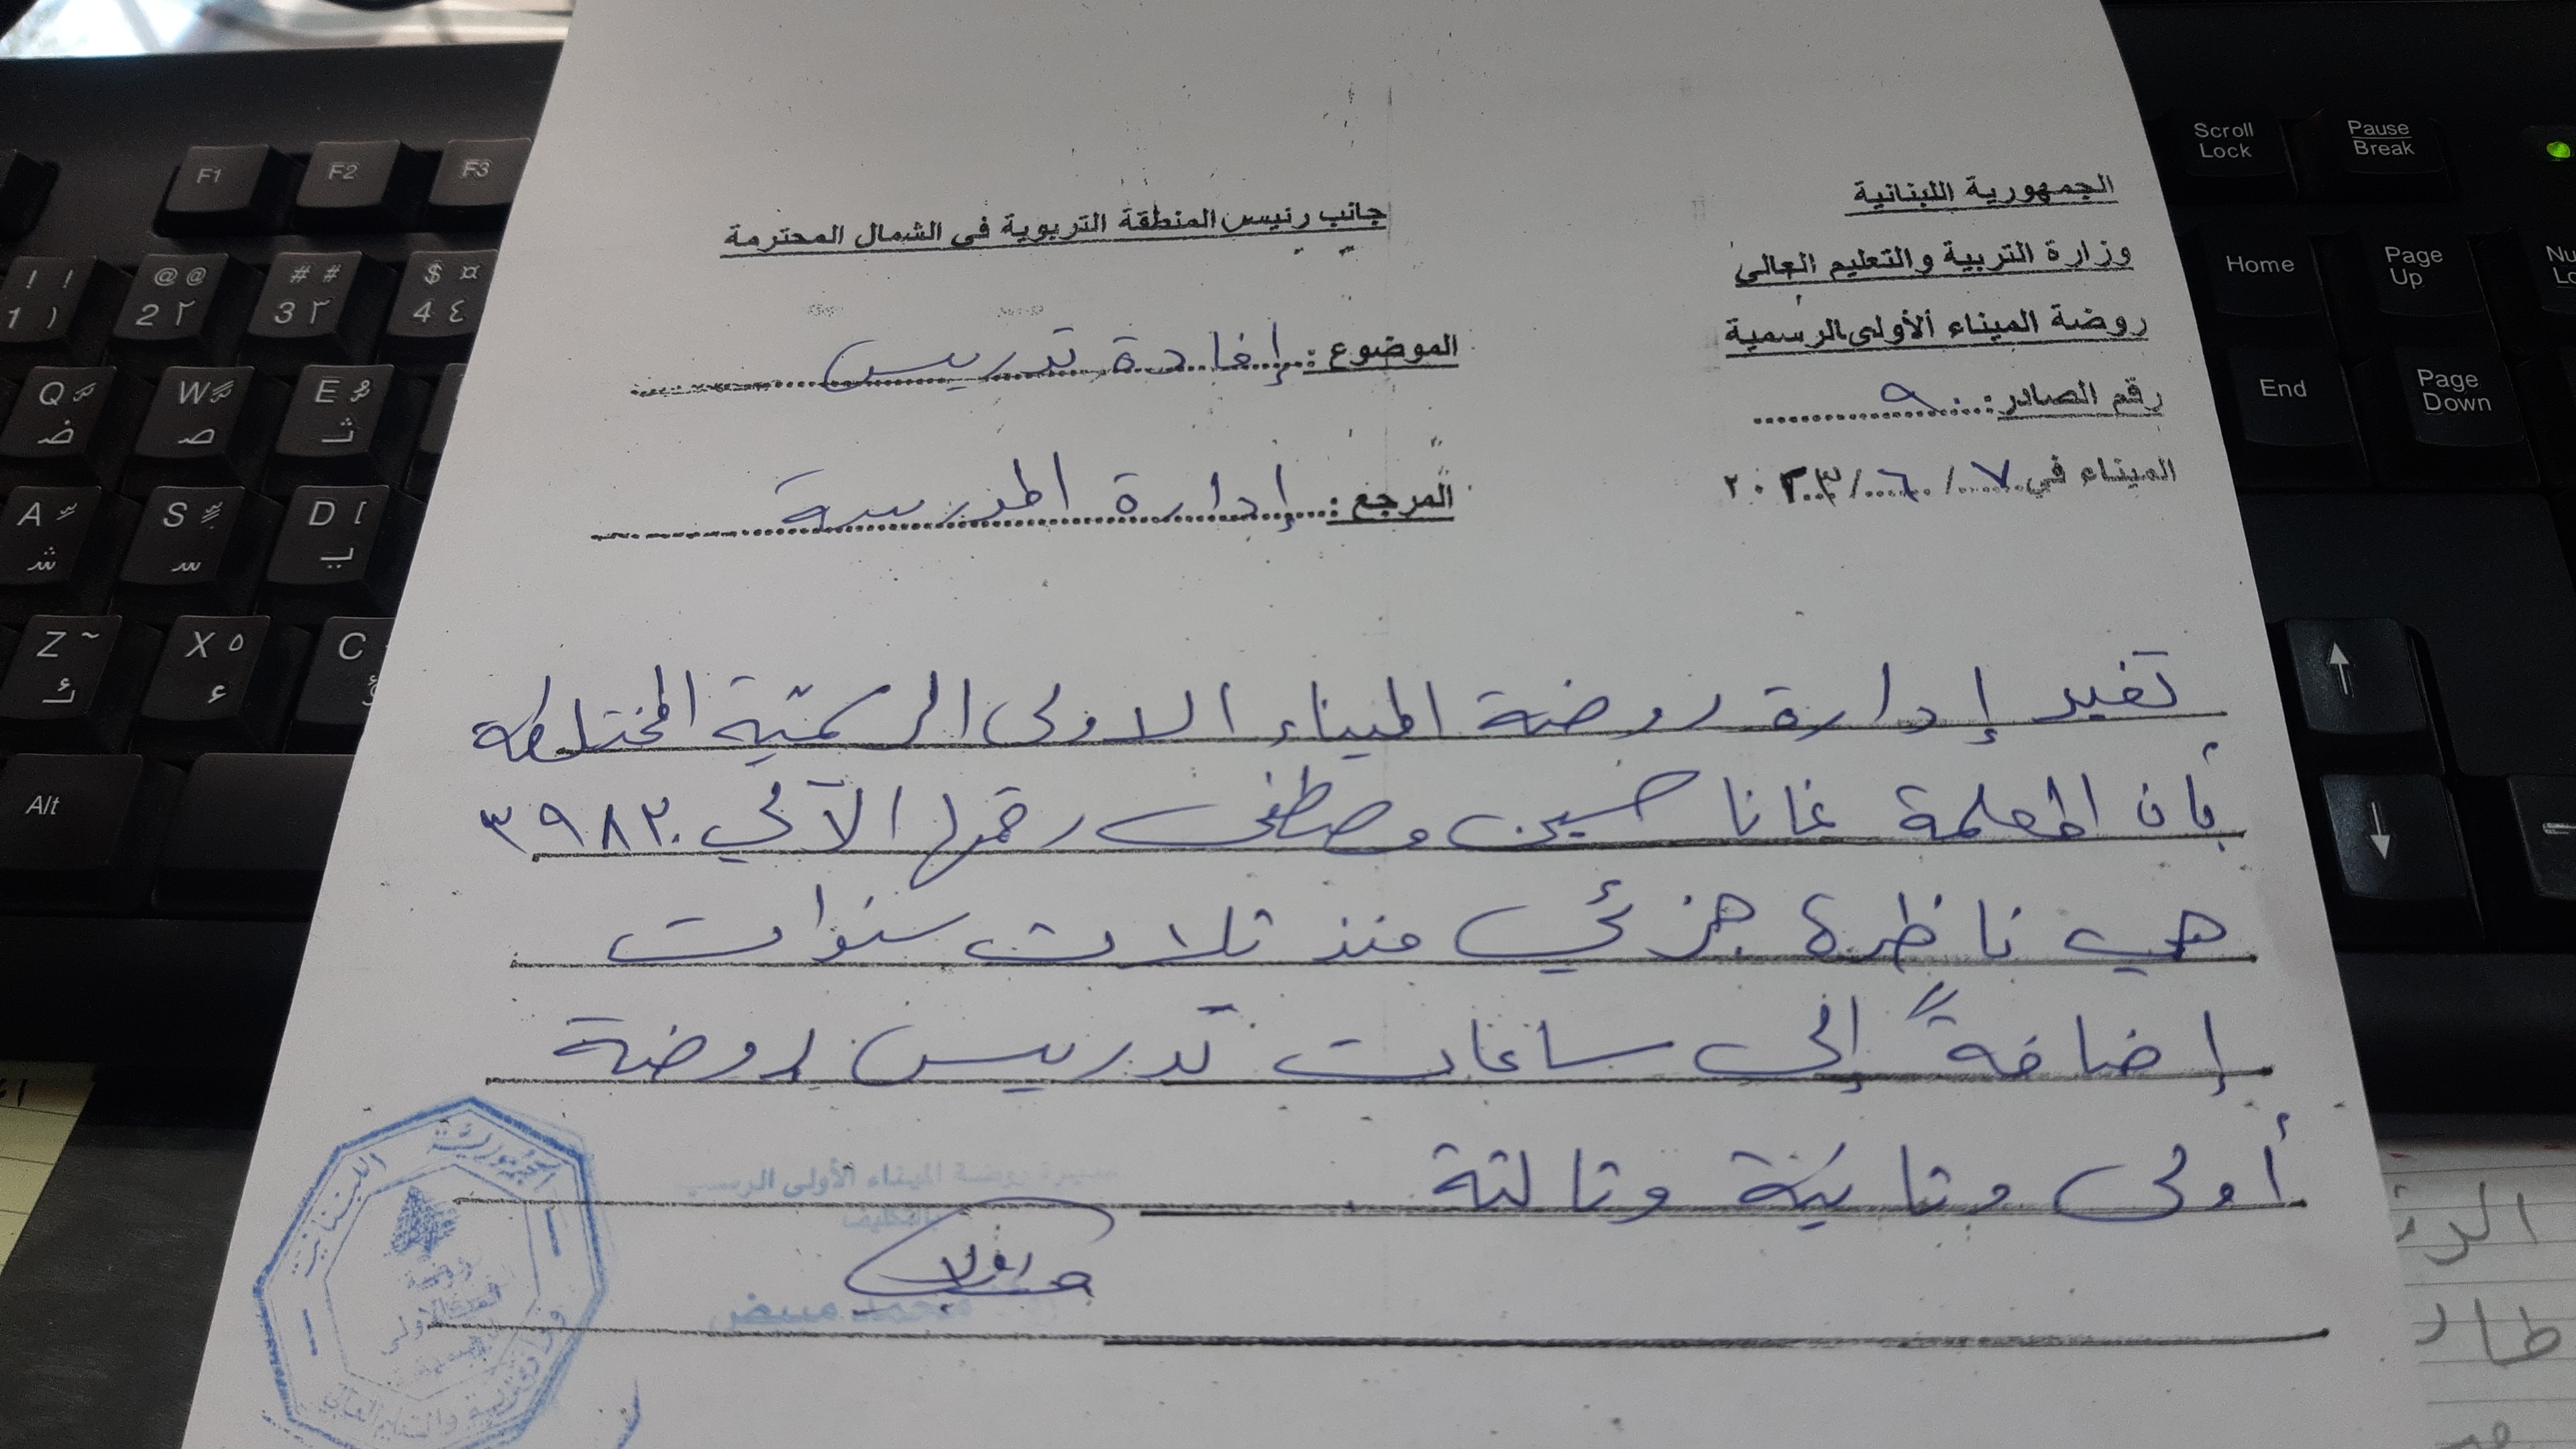 الجمهورية اللبنانية
وزارة التربية والتعليم العالي
روضة الميناء الأولى الرسمية
رقم الصادر: ٩٠
الميناء في ٧ / ٦ / ٢٠٢٣
جانب رئيس المنطقة التربوية في الشمال المحترمة
الموضوع: إفادة تدريس
المرجع: إدارة المدرسة
تفيد إدارة روضة الميناء الاولى الرسميّة المختلطة
بأن المعلمة غانا حسين مصطفى رقمها الآلي ٣٩٨٢٠
هي ناظرة جزئي منذ ثلاث سنوات
إضافةً إلى ساعات تدريس لروضة
أولى وثانية وثالثة
روضة الميناء الأولى
بالتكليف
محمد مبيض
الجمهورية اللبنانية
وزارة التربية والتعليم العالي
F1
F2
F3
! !
1 ١
@ @
2 ٢
# #
3 ٣
$ ¤
4 ٤
Q
ض
W
ص
E
ث
A
ش
S
س
D [
ي
Z ~
ئ
X ٥
ء
C
Alt
Scroll Lock
Pause Break
Home
Page Up
End
Page Down
طار